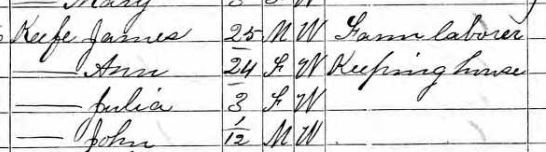 Mary 3 F W
Keefe James 25 M W Farm laborer
— Ann 24 F W Keeping house
— Julia 3 F W
— John 1/12 M W